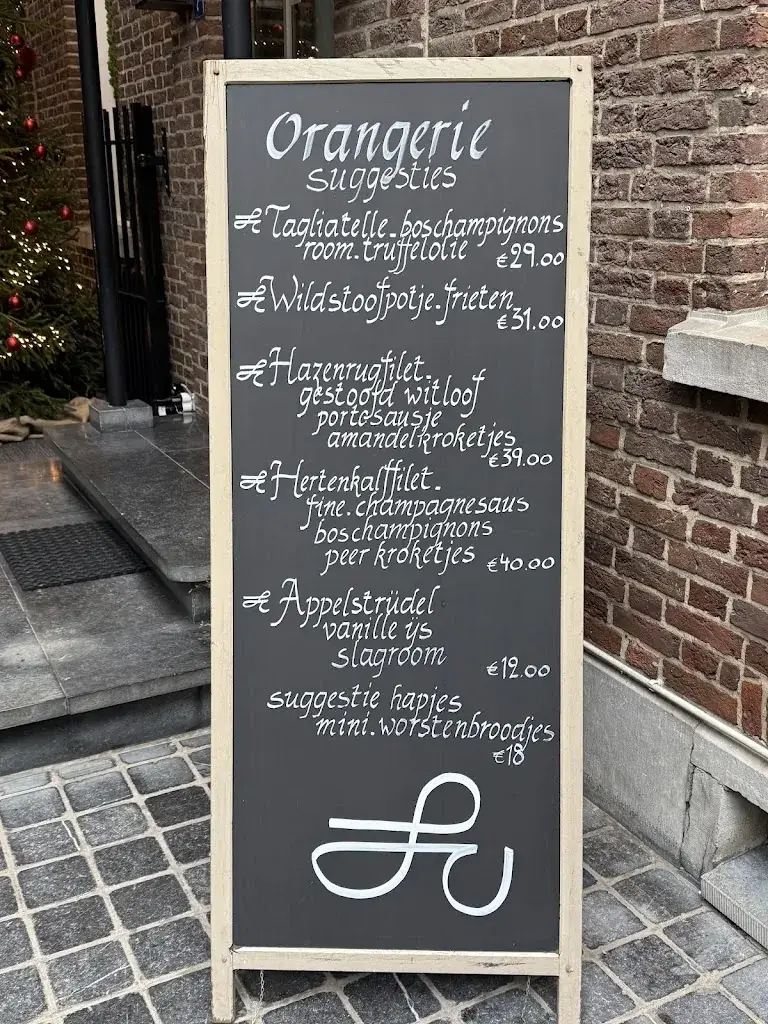 Orangerie
suggesties
Tagliatelle.boschampignons
room.truffelolie €29.00
Wildstoofpotje.frieten
€31.00
Hazenrugfilet.
gestoofd witloof
portosausje
amandelkroketjes
€39.00
Hertenkalffilet.
fine.champagnesaus
boschampignons
peer kroketjes €40.00
Appelstrüdel
vanille ijs
slagroom €12.00
suggestie hapjes
mini.worstenbroodjes
€18